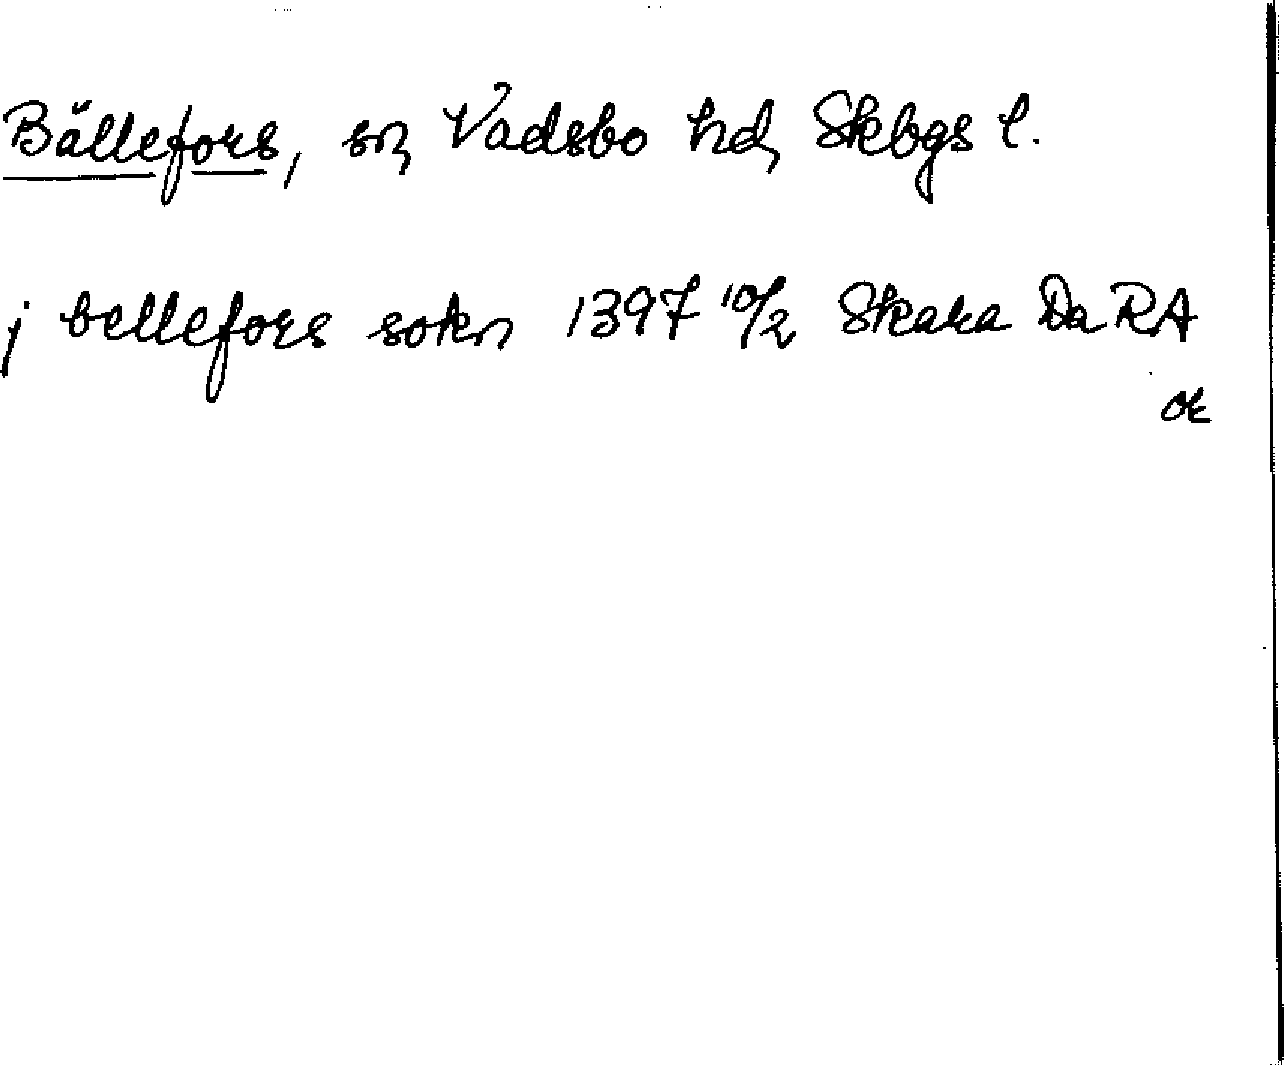 Bällefors, sn, Vadsbo hd, Skbgs l.
j bellefors sokn 1397 10/2 Skara Da RA